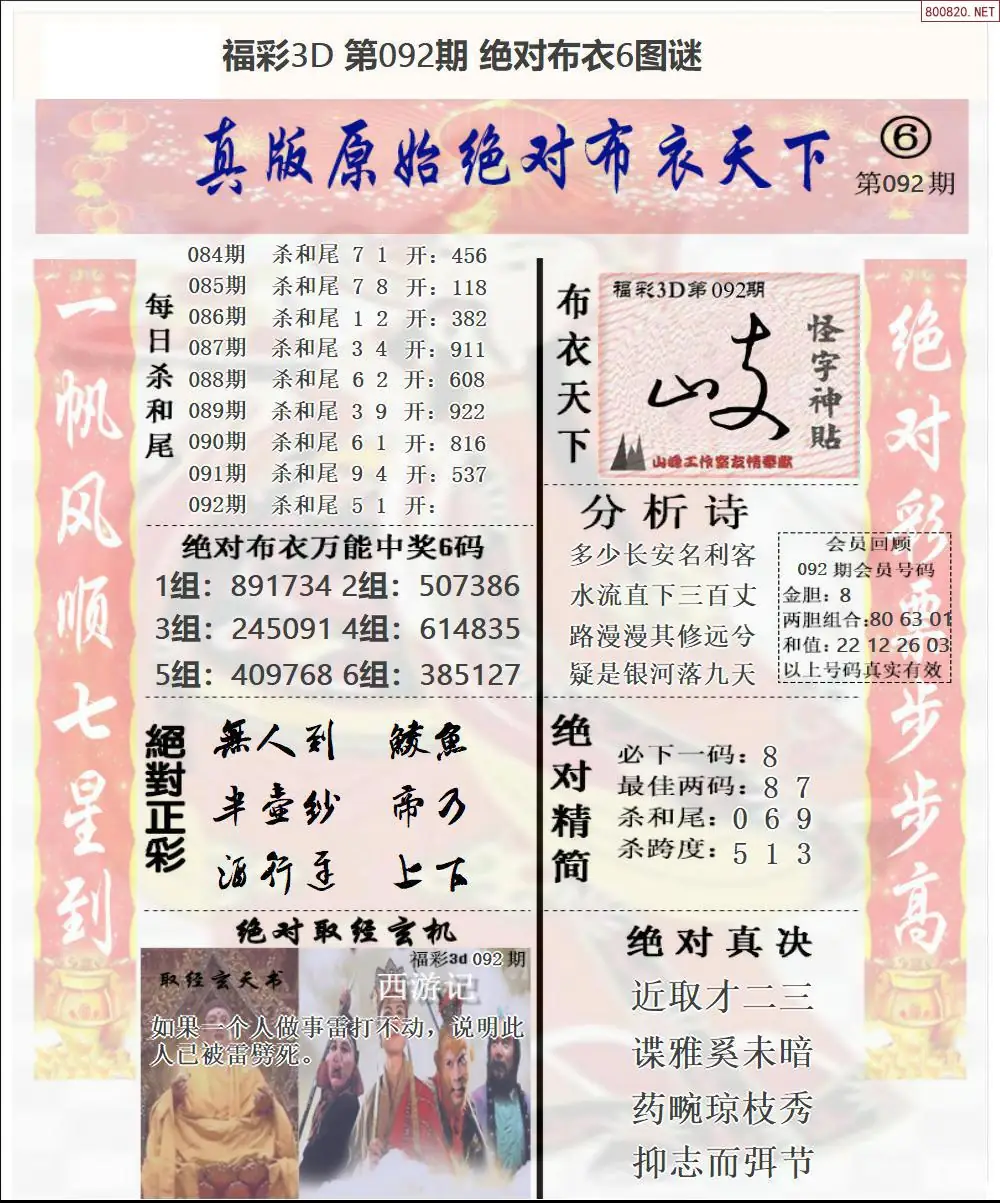 800820.NET
福彩3D 第092期 绝对布衣6图谜
真版原始绝对布衣天下
⑥
第092期
一帆风顺七星到
每日杀和尾
084期 杀和尾 7 1 开：456
085期 杀和尾 7 8 开：118
086期 杀和尾 1 2 开：382
087期 杀和尾 3 4 开：911
088期 杀和尾 6 2 开：608
089期 杀和尾 3 9 开：922
090期 杀和尾 6 1 开：816
091期 杀和尾 9 4 开：537
092期 杀和尾 5 1 开：
绝对布衣万能中奖6码
1组：891734 2组：507386
3组：245091 4组：614835
5组：409768 6组：385127
絕對正彩
無人到 鯪魚
半壶纱 帝乃
酒行连 上下
绝对取经玄机
福彩3d 092期
取经玄天书
西游记
如果一个人做事雷打不动，说明此
人已被雷劈死。
布衣天下
福彩3D第092期
岐
怪字神貼
山峰工作室友情奉献
分析诗
多少长安名利客
水流直下三百丈
路漫漫其修远兮
疑是银河落九天
会员回顾
092期会员号码
金胆：8
两胆组合:80 63 01
和值：22 12 26 03
以上号码真实有效
绝对精简
必下一码：8
最佳两码：8 7
杀和尾：0 6 9
杀跨度：5 1 3
绝对真决
近取才二三
谍雅奚未暗
药畹琼枝秀
抑志而弭节
绝对彩票步步高